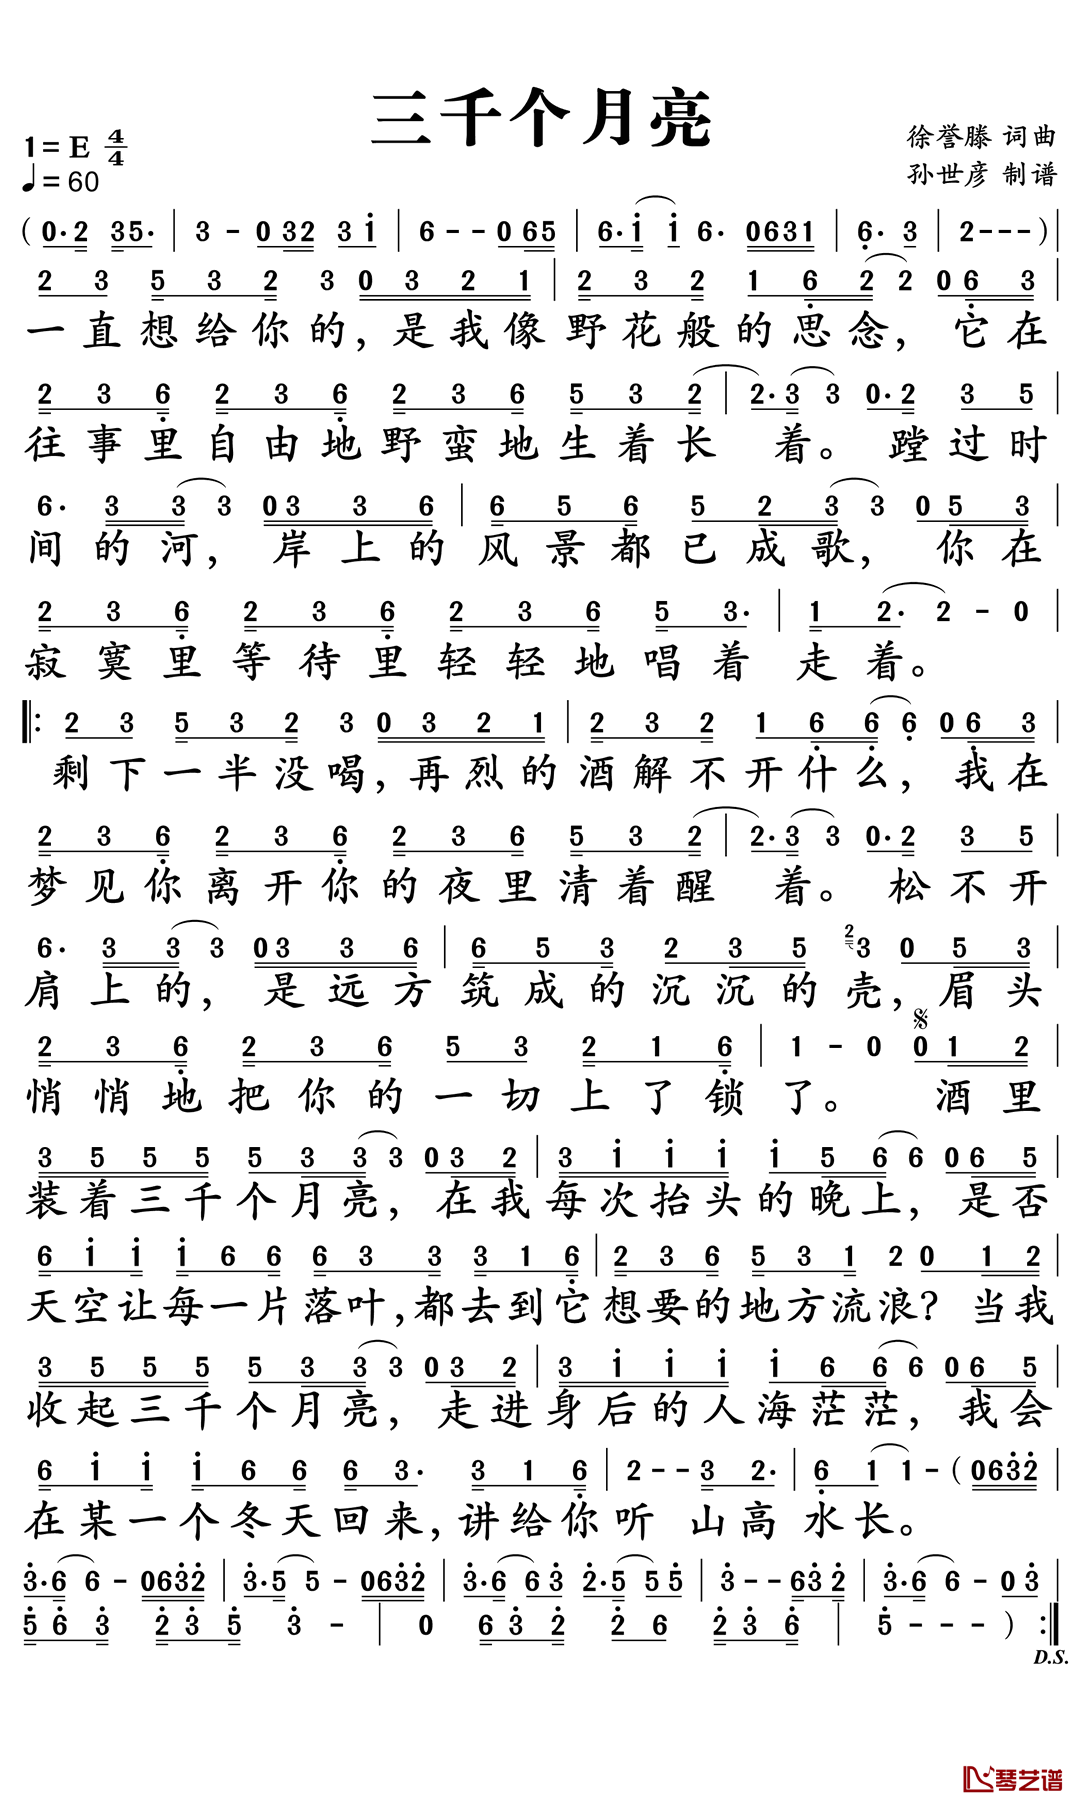 三千个月亮
1=E 4/4
♩=60
徐誉滕 词曲
孙世彦 制谱
(0·2 35· | 3 - 0 32 3 i | 6 - - 0 65 | 6·i i 6· 0631 | 6· 3 | 2 - - - ) |
2 3 5 3 2 3 0 3 2 1 | 2 3 2 1 6 2 2 0 6 3 |
一直想给你的,是我像野花般的思念,它在
2 3 6 2 3 6 2 3 6 5 3 2 | 2·3 3 0·2 3 5 |
往事里自由地野蛮地生着长 着。蹚过时
6· 3 3 3 0 3 3 6 | 6 5 6 5 2 3 3 0 5 3 |
间的河,岸上的风景都已成歌,你在
2 3 6 2 3 6 2 3 6 5 3· | 1 2· 2 - 0 |
寂寞里等待里轻轻地唱着走着。
‖: 2 3 5 3 2 3 0 3 2 1 | 2 3 2 1 6 6 6 0 6 3 |
剩下一半没喝,再烈的酒解不开什么,我在
2 3 6 2 3 6 2 3 6 5 3 2 | 2·3 3 0·2 3 5 |
梦见你离开你的夜里清着醒 着。松不开
6· 3 3 3 0 3 3 6 | 6 5 3 2 3 5 2 3 0 5 3 |
肩上的,是远方筑成的沉沉的壳,眉头
2 3 6 2 3 6 5 3 2 1 6 | 1 - 0 𝄋 0 1 2 |
悄悄地把你的一切上了锁了。酒里
3 5 5 5 5 3 3 3 0 3 2 | 3 i i i i 5 6 6 0 6 5 |
装着三千个月亮,在我每次抬头的晚上,是否
6 i i i 6 6 6 3 3 3 1 6 | 2 3 6 5 3 1 2 0 1 2 |
天空让每一片落叶,都去到它想要的地方流浪?当我
3 5 5 5 5 3 3 3 0 3 2 | 3 i i i i 6 6 6 0 6 5 |
收起三千个月亮,走进身后的人海茫茫,我会
6 i i i 6 6 6 3· 3 1 6 | 2 - - 3 2· | 6 1 1 - (0632 |
在某一个冬天回来,讲给你听 山高 水长。
3·6 6 - 0632 | 3·5 5 - 0632 | 3·6 6 3 2·5 5 5 | 3 - - 63 2 | 3·6 6 - 0 3 |
5 6 3 2 3 5 3 - | 0 6 3 2 2 6 2 3 6 | 5 - - - ) :‖
D.S.
琴艺谱